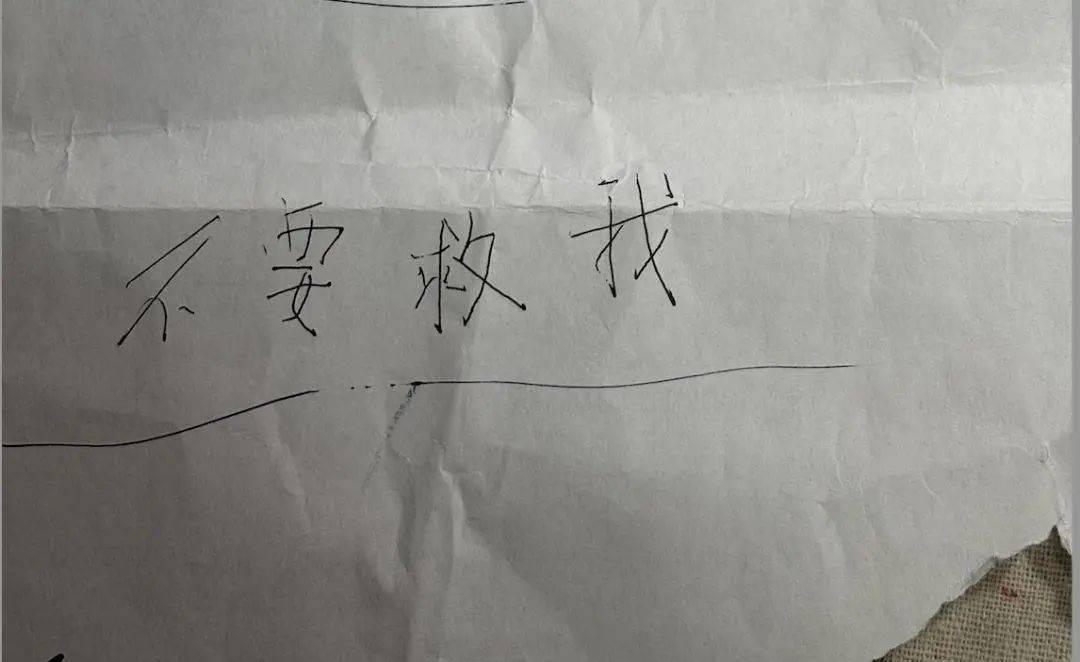 不要救我